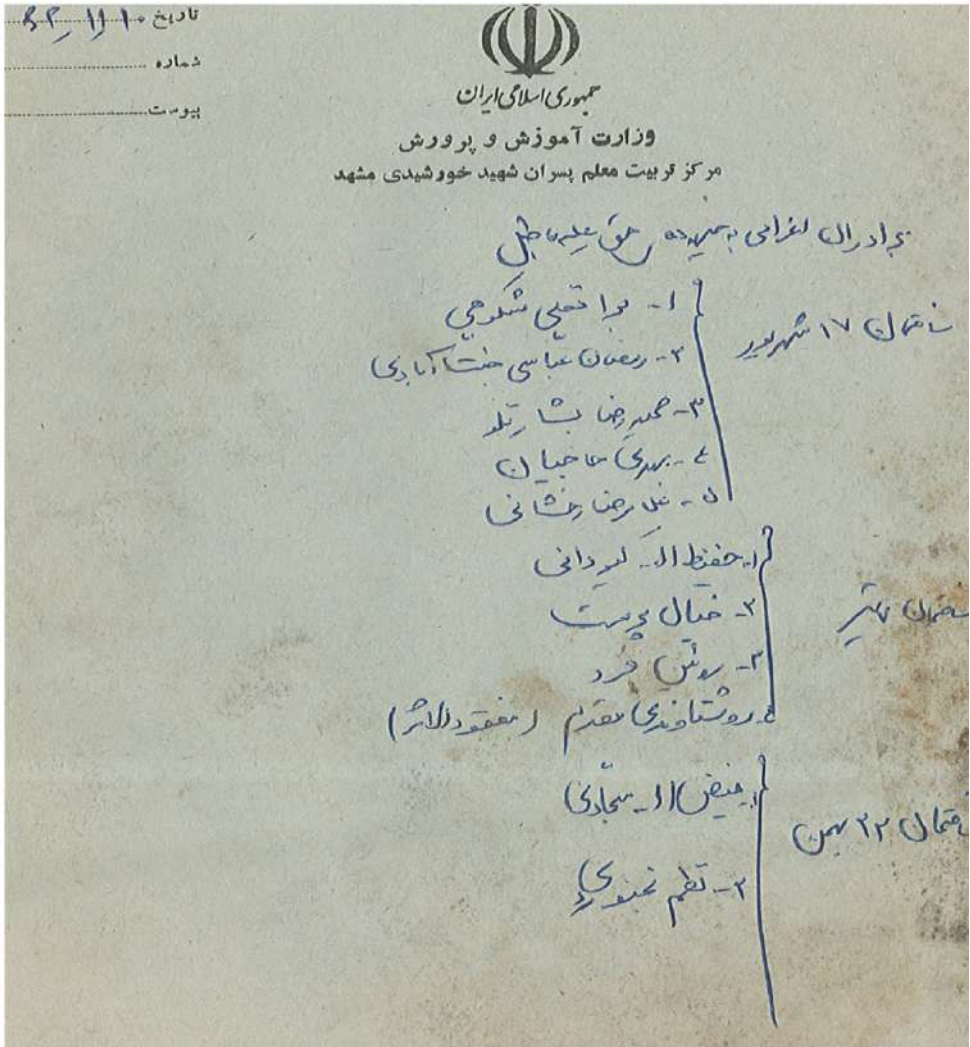 تاریخ ۶۲/۱۱/۱۰
شماره
پیوست
جمهوری اسلامی ایران
وزارت آموزش و پرورش
مرکز تربیت معلم پسران شهید خورشیدی مشهد
برادران اعزامی به جبهه حق علیه باطل
ساختمان ۱۷ شهریور
۱- براتعلی شکوهی
۲- رمضان عباسی جنت آبادی
۳- حمیدرضا بشارتلو
۴- مهدی حاجیان
۵- غلامرضا رخشانی
ساختمان
۱- حفیظ اله
۲- خیال پرست
۳- روشن فرد
۴- مقدم (مفقودالاثر)
ساختمان ۲۲ بهمن
۱- فیض اله سجادی
۲- نظم